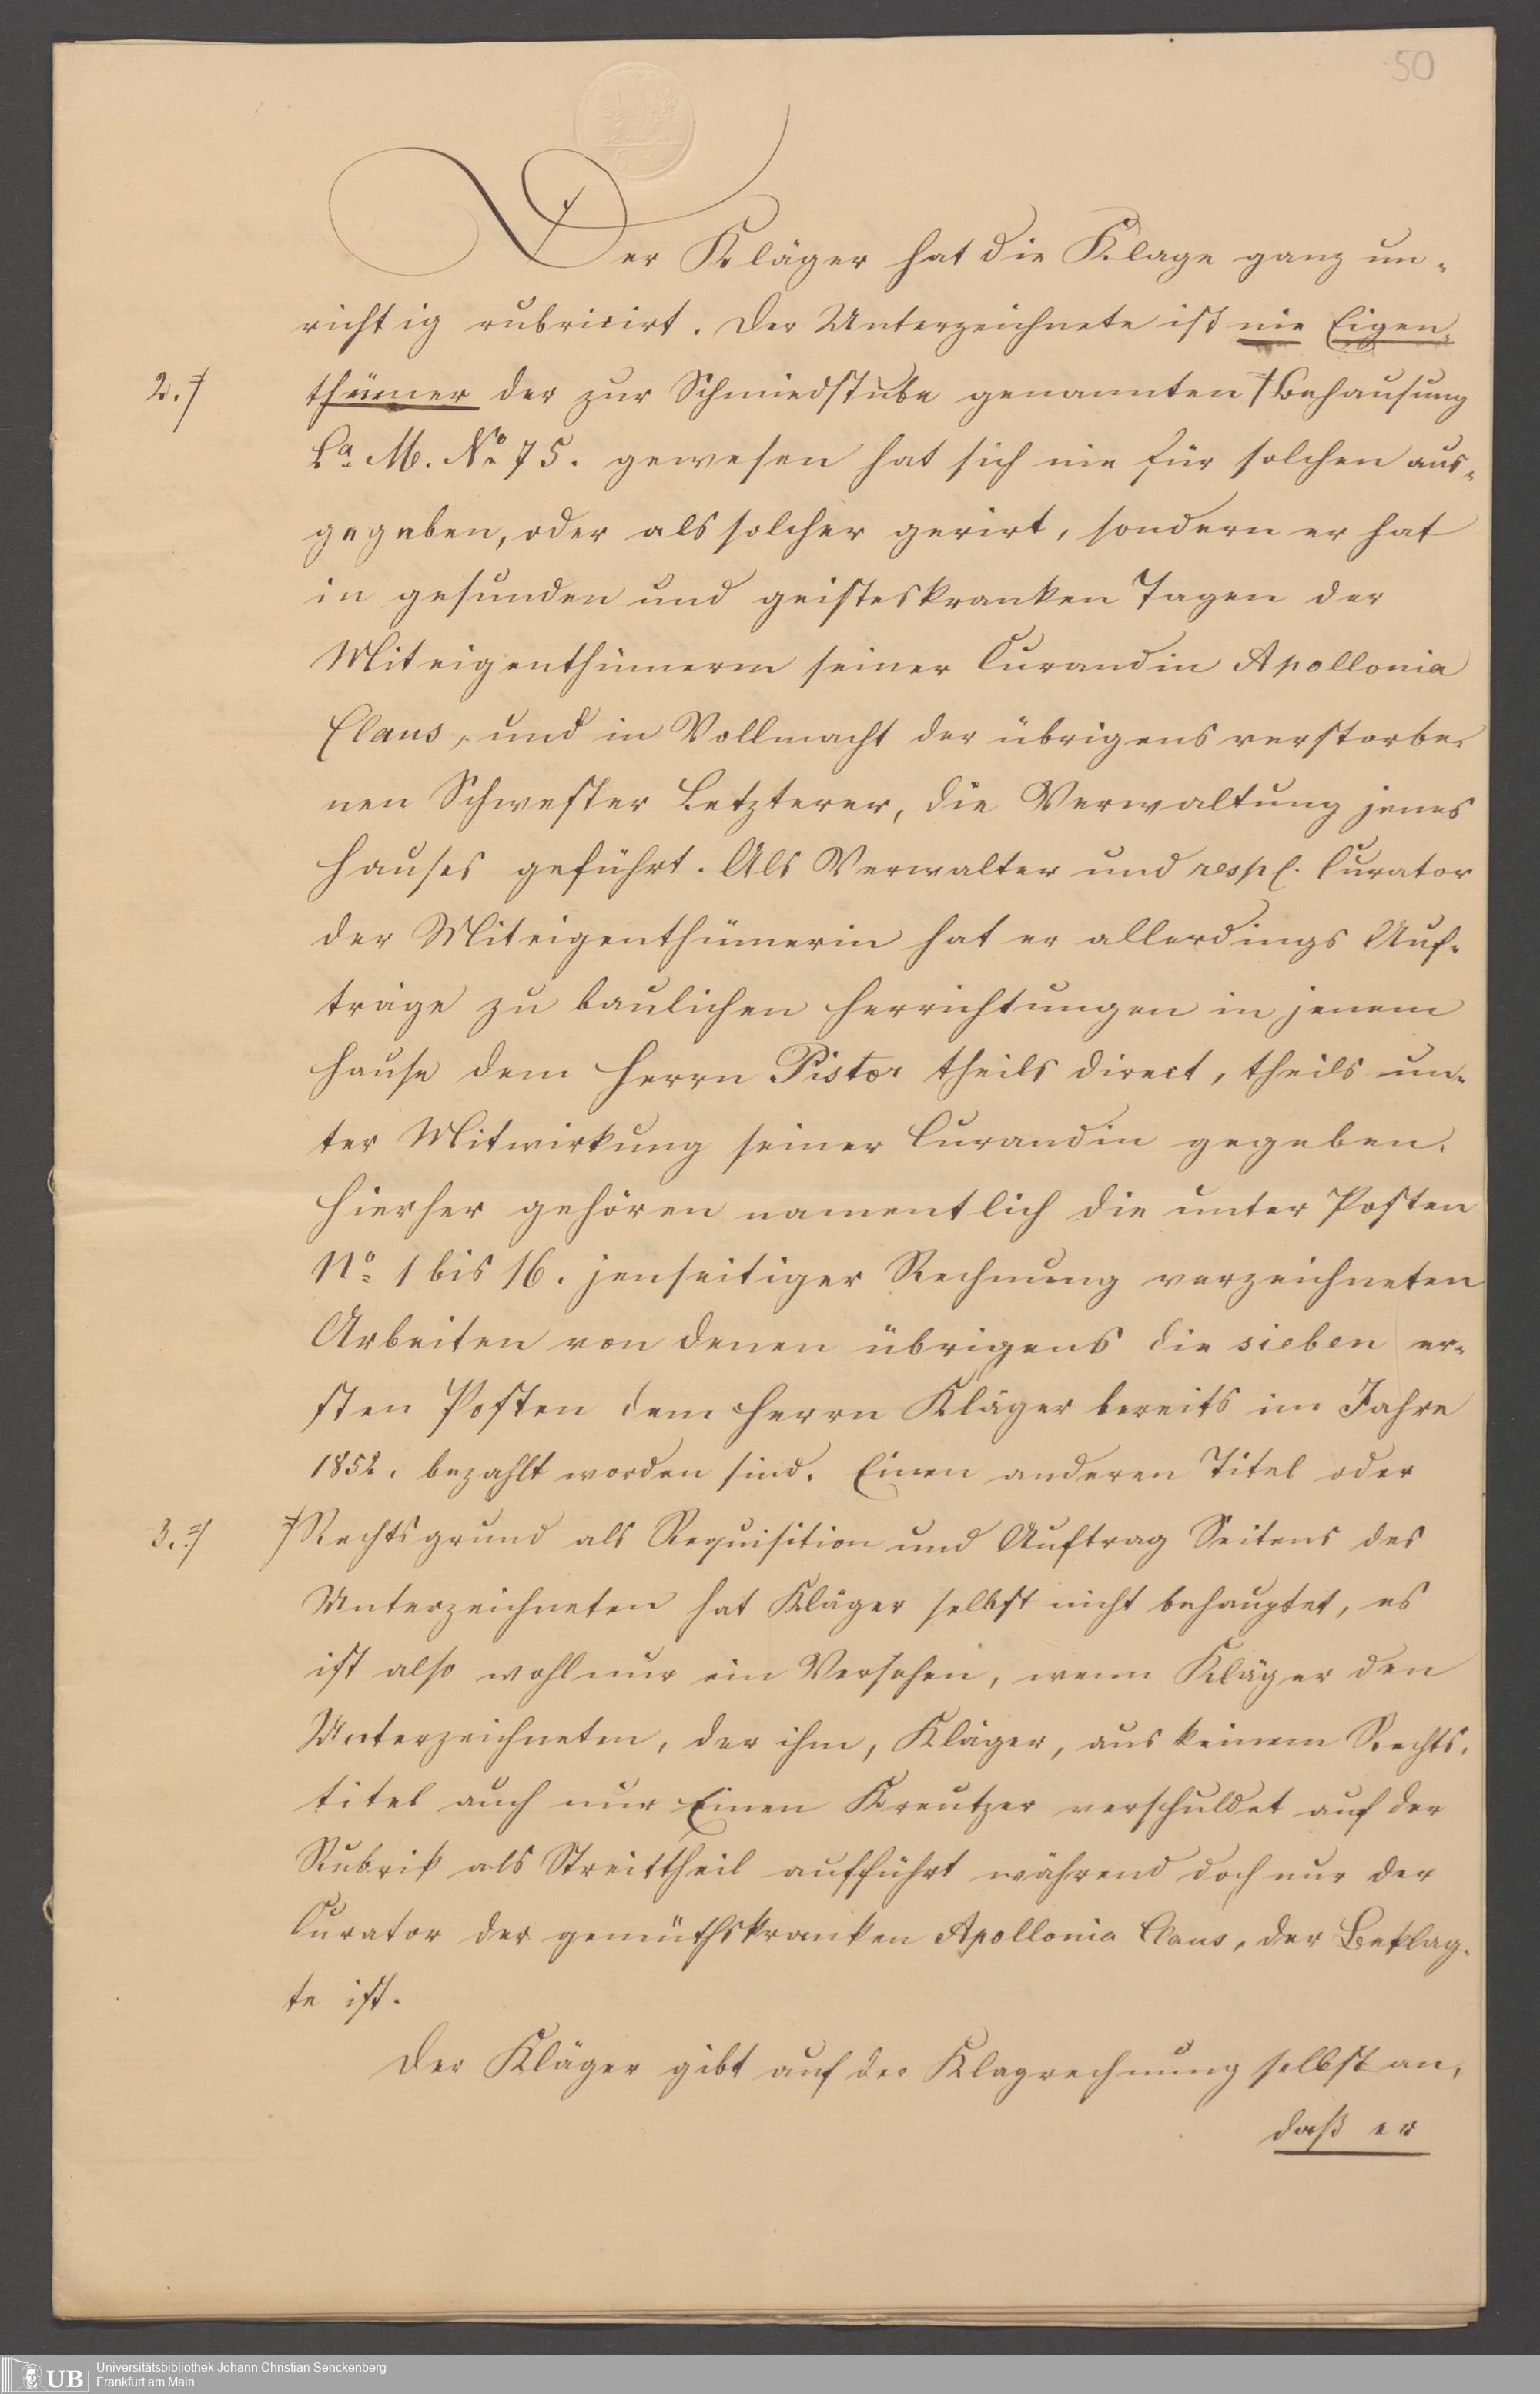 50
Der Kläger hat die Klage ganz un-
richtig rubricirt. Der Unterzeichnete ist nie Eigen-
2. ⌿ thümer der zur Schmiedstube genannten ⌿ Behausung
La. M. No. 75. gewesen hat sich nie für solchen aus-
gegeben, oder als solcher gerirt, sondern er hat
in gesunden und geisteskranken Tagen der
Miteigenthümerin seiner Curandin Apollonia
Claus, und in Vollmacht der übrigens verstorbe-
nen Schwester Letzterer, die Verwaltung jenes
Hauses geführt. Als Verwalter und resp. Curator
der Miteigenthümerin hat er allerdings Auf-
träge zu baulichen Herrichtungen in jenem
Hause dem Herrn Pistor theils direct, theils un-
ter Mitwirkung seiner Curandin gegeben.
Hierher gehören namentlich die unter Posten
No. 1 bis 16. jenseitiger Rechnung verzeichneten
Arbeiten von denen übrigens die sieben er-
sten Posten dem Herrn Kläger bereits im Jahre
1852. bezahlt worden sind. Einen anderen Titel oder
3. ⌿ ⌿ Rechtsgrund als Requisition und Auftrag Seitens des
Unterzeichneten hat Kläger selbst nicht behauptet, es
ist also wohl nur ein Versehen, wenn Kläger den
Unterzeichneten, der ihm, Kläger, aus keinem Rechts-
titel auch nur Einen Kreutzer verschuldet auf der
Rubrik als Streittheil aufführt während doch nur der
Curator der gemüthskranken Apollonia Claus, der Beklag-
te ist.
Der Kläger gibt auf der Klagrechnung selbst an,
daß er
UB
Universitätsbibliothek Johann Christian Senckenberg
Frankfurt am Main